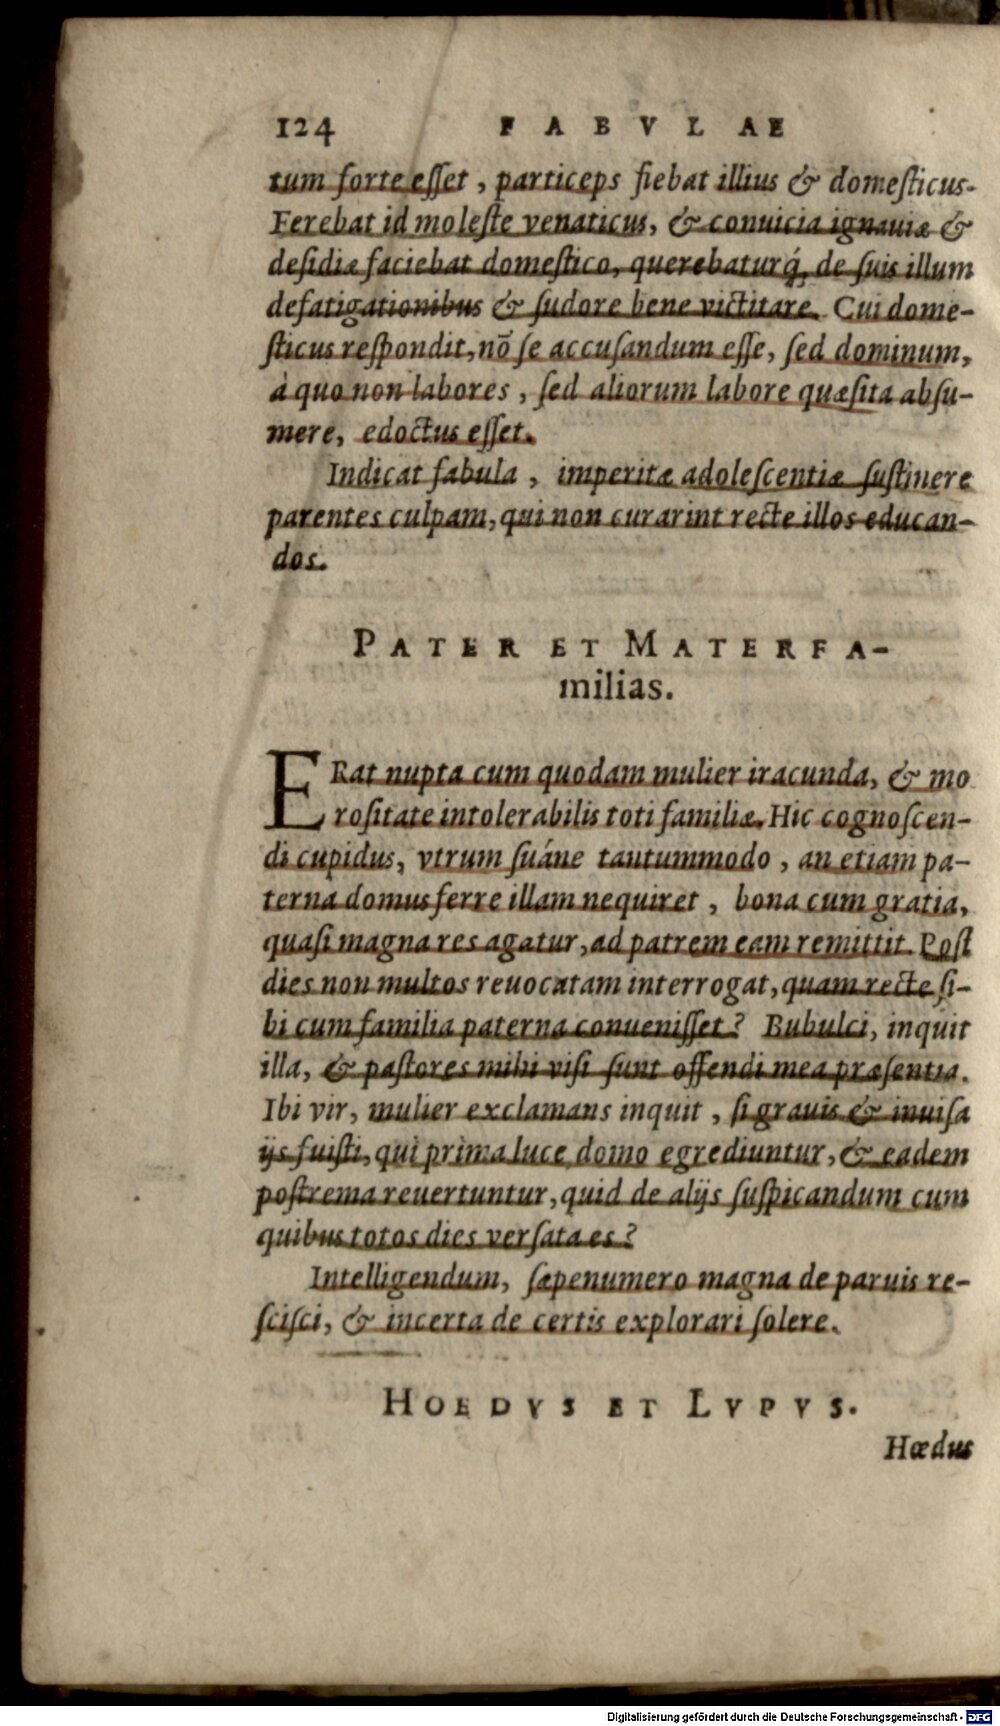 124 FABVLAE
tum forte eſſet, particeps fiebat illius & domeſticus.
Ferebat id moleſte venaticus, & conuicia ignauiæ &
deſidiæ faciebat domeſtico, querebaturq́, de ſuis illum
defatigationibus & ſudore bene victitare. Cui dome-
ſticus reſpondit, nō ſe accuſandum eſſe, ſed dominum,
à quo non labores, ſed aliorum labore quæſita abſu-
mere, edoctus eſſet.
Indicat fabula, imperitæ adoleſcentiæ ſuſtinere
parentes culpam, qui non curarint recte illos educan-
dos.
PATER ET MATERFA-
milias.
ERat nupta cum quodam mulier iracunda, & mo
roſitate intolerabilis toti familiæ. Hic cognoſcen-
di cupidus, vtrum ſuáne tantummodo, an etiam pa-
terna domus ferre illam nequiret, bona cum gratia,
quaſi magna res agatur, ad patrem eam remittit. Poſt
dies non multos reuocatam interrogat, quam recte ſi-
bi cum familia paterna conueniſſet? Bubulci, inquit
illa, & paſtores mihi viſi ſunt offendi mea præſentia.
Ibi vir, mulier exclamans inquit, ſi grauis & inuiſa
ijs fuiſti, qui prima luce domo egrediuntur, & eadem
poſtrema reuertuntur, quid de alijs ſuſpicandum cum
quibus totos dies verſata es?
Intelligendum, ſæpenumero magna de paruis re-
ſciſci, & incerta de certis explorari ſolere.
HOEDVS ET LVPVS.
Hœdus
Digitalisierung gefördert durch die Deutsche Forschungsgemeinschaft - DFG